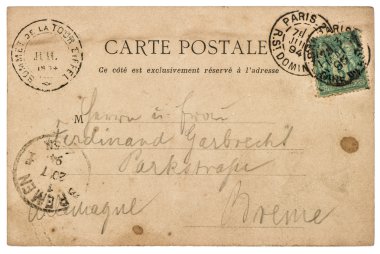 SOMMET DE LA TOUR EIFFEL
JUIL
CARTE POSTALE
PARIS
7E
JUIL
94
R. ST DOMIN
Ce côté est exclusivement réservé à l'adresse
M
Herrn u. Frau
Ferdinand Garbrecht
Parkstraße
BREMEN
Allemagne
Breme